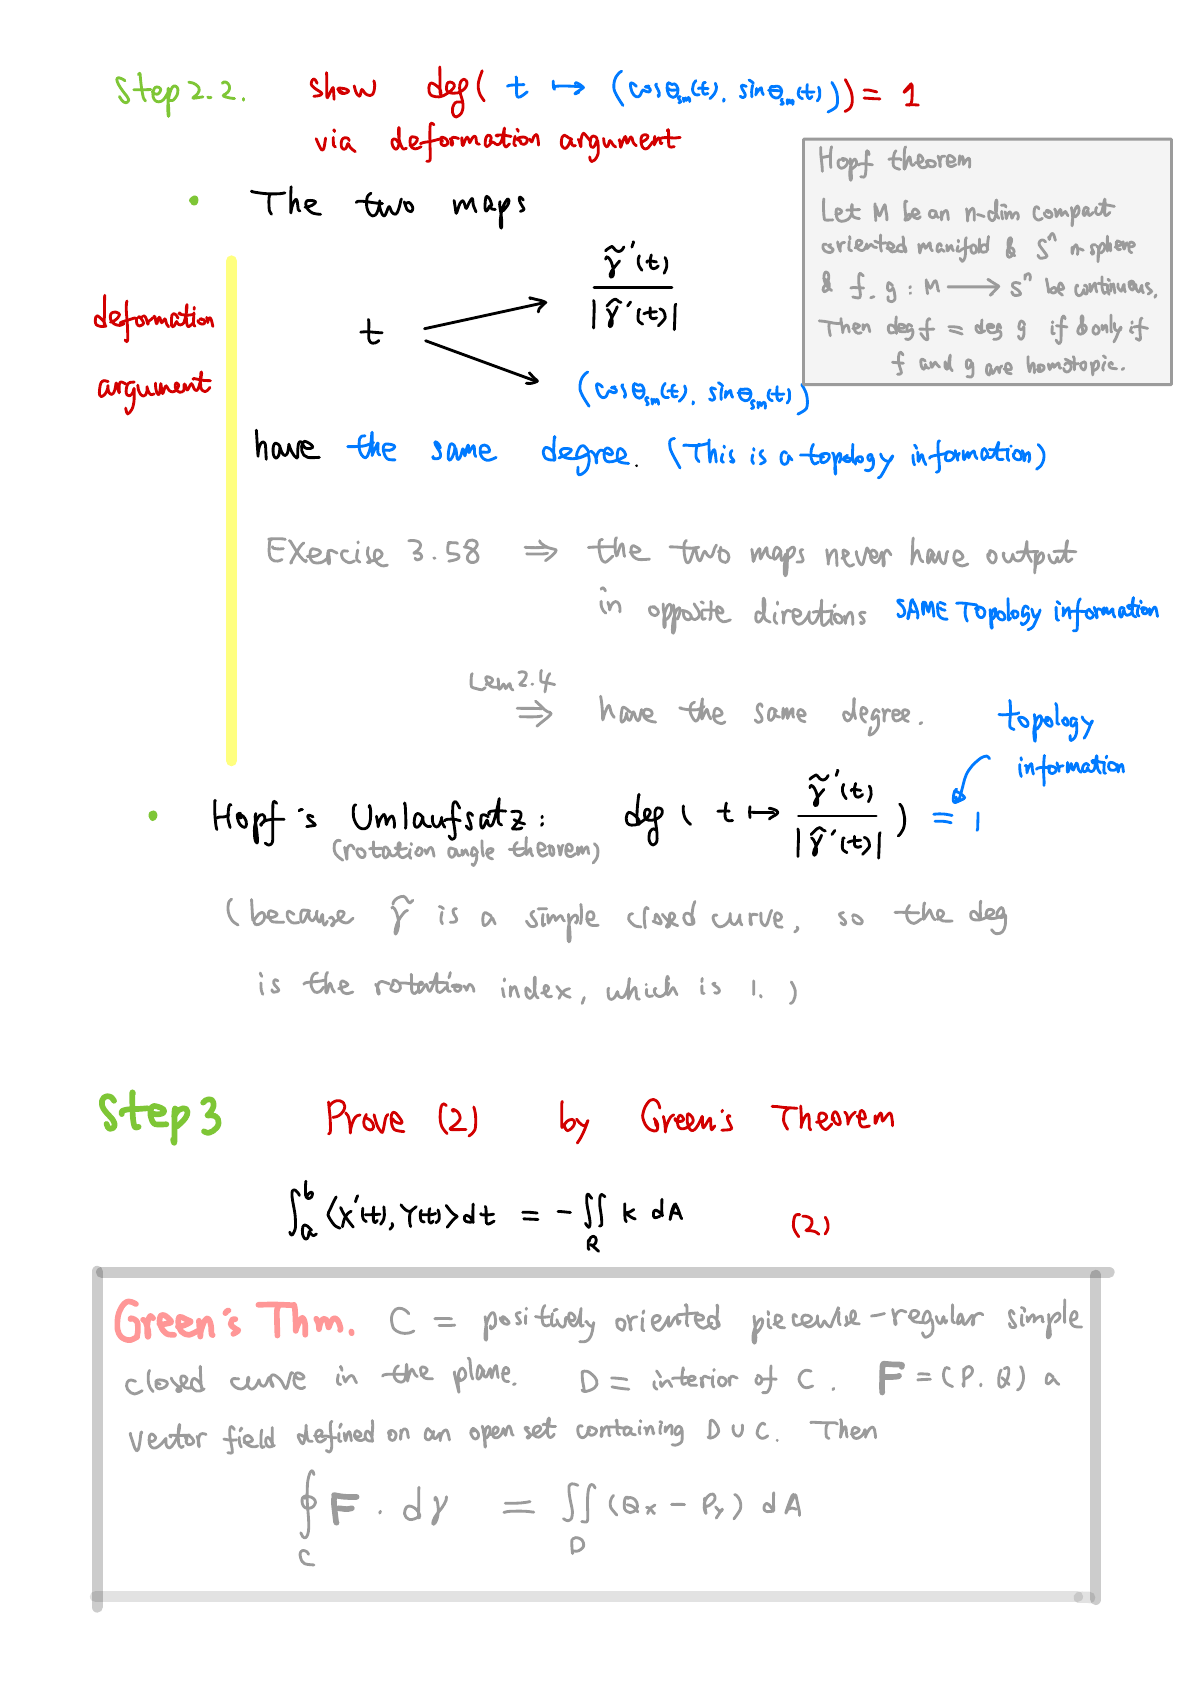 Step 2.2. show deg( t ↦ (cosθ_sm(t), sinθ_sm(t))) = 1
via deformation argument
Hopf theorem
Let M be an n-dim compact
oriented manifold & Sⁿ n-sphere
& f, g : M ⟶ Sⁿ be continuous.
Then deg f = deg g if & only if
f and g are homotopic.
• The two maps
deformation
argument
t
γ̃'(t) / |γ̃'(t)|
(cosθ_sm(t), sinθ_sm(t))
have the same degree. (This is a topology information)
Exercise 3.58 ⇒ the two maps never have output
in opposite directions SAME Topology information
Lem 2.4
⇒ have the same degree.
topology
information
• Hopf's Umlaufsatz: deg ( t ↦ γ̃'(t) / |γ̃'(t)| ) = 1
(rotation angle theorem)
(because γ̃ is a simple closed curve, so the deg
is the rotation index, which is 1. )
Step 3 Prove (2) by Green's Theorem
∫_a^b ⟨X'(t), Y(t)⟩ dt = - ∬_R K dA (2)
Green's Thm. C = positively oriented piecewise-regular simple
closed curve in the plane. D = interior of C. F = (P, Q) a
vector field defined on an open set containing D ∪ C. Then
∮_C F · dγ = ∬_D (Qx - Py) dA